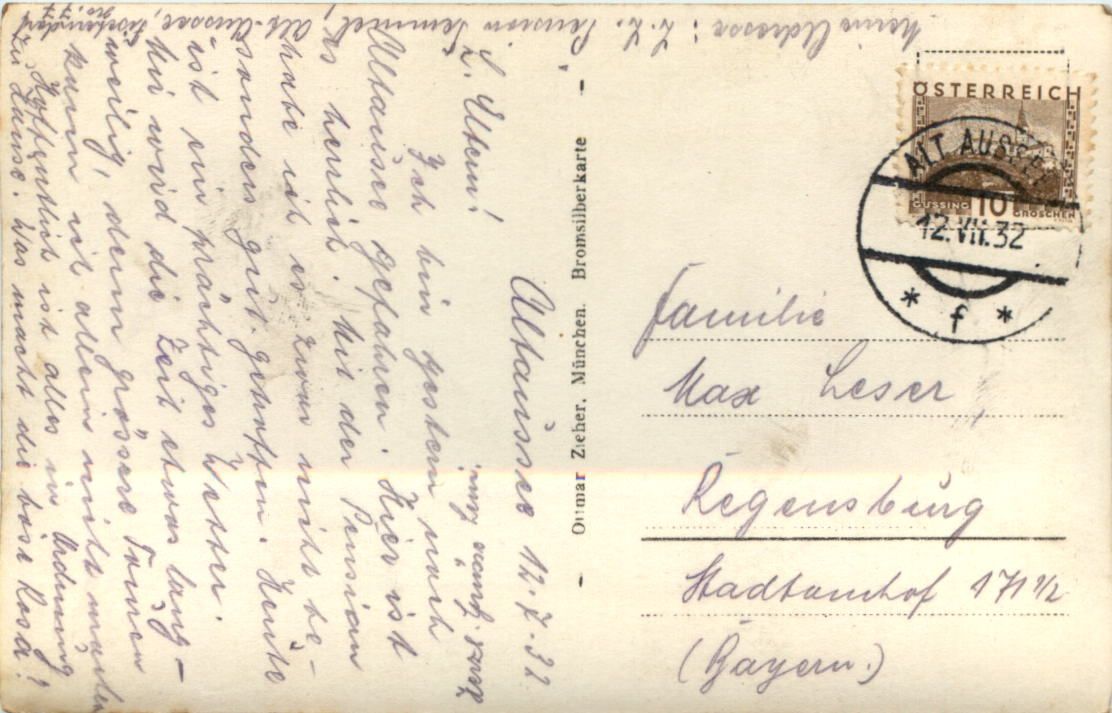 Meine Adresse: z. Z. Pension Temmel, Alt-Aussee,
Altaussee 12.7.32
L. Eltern!
Ich bin gestern nach
Altaussee gefahren. Hier ist
es herrlich. Mit der Pension
hatte ich es zwar nicht be-
sonders gut getroffen. Heute
ist ein prächtiges Wetter.
Mir wird die Zeit etwas lang-
weilig, denn grössere Touren
kann ich allein nicht machen
Hoffentlich ist alles in Ordnung
zu Hause. Was macht die böse Rosa?
Herzl.
Ottmar Zieher, München. Bromsilberkarte
ÖSTERREICH
GÜSSING 10 GROSCHEN
ALT AUSSEE
12.VII.32
* f *
Familie
Max Leser,
Regensburg
Stadtamhof 171 1/2
(Bayern.)